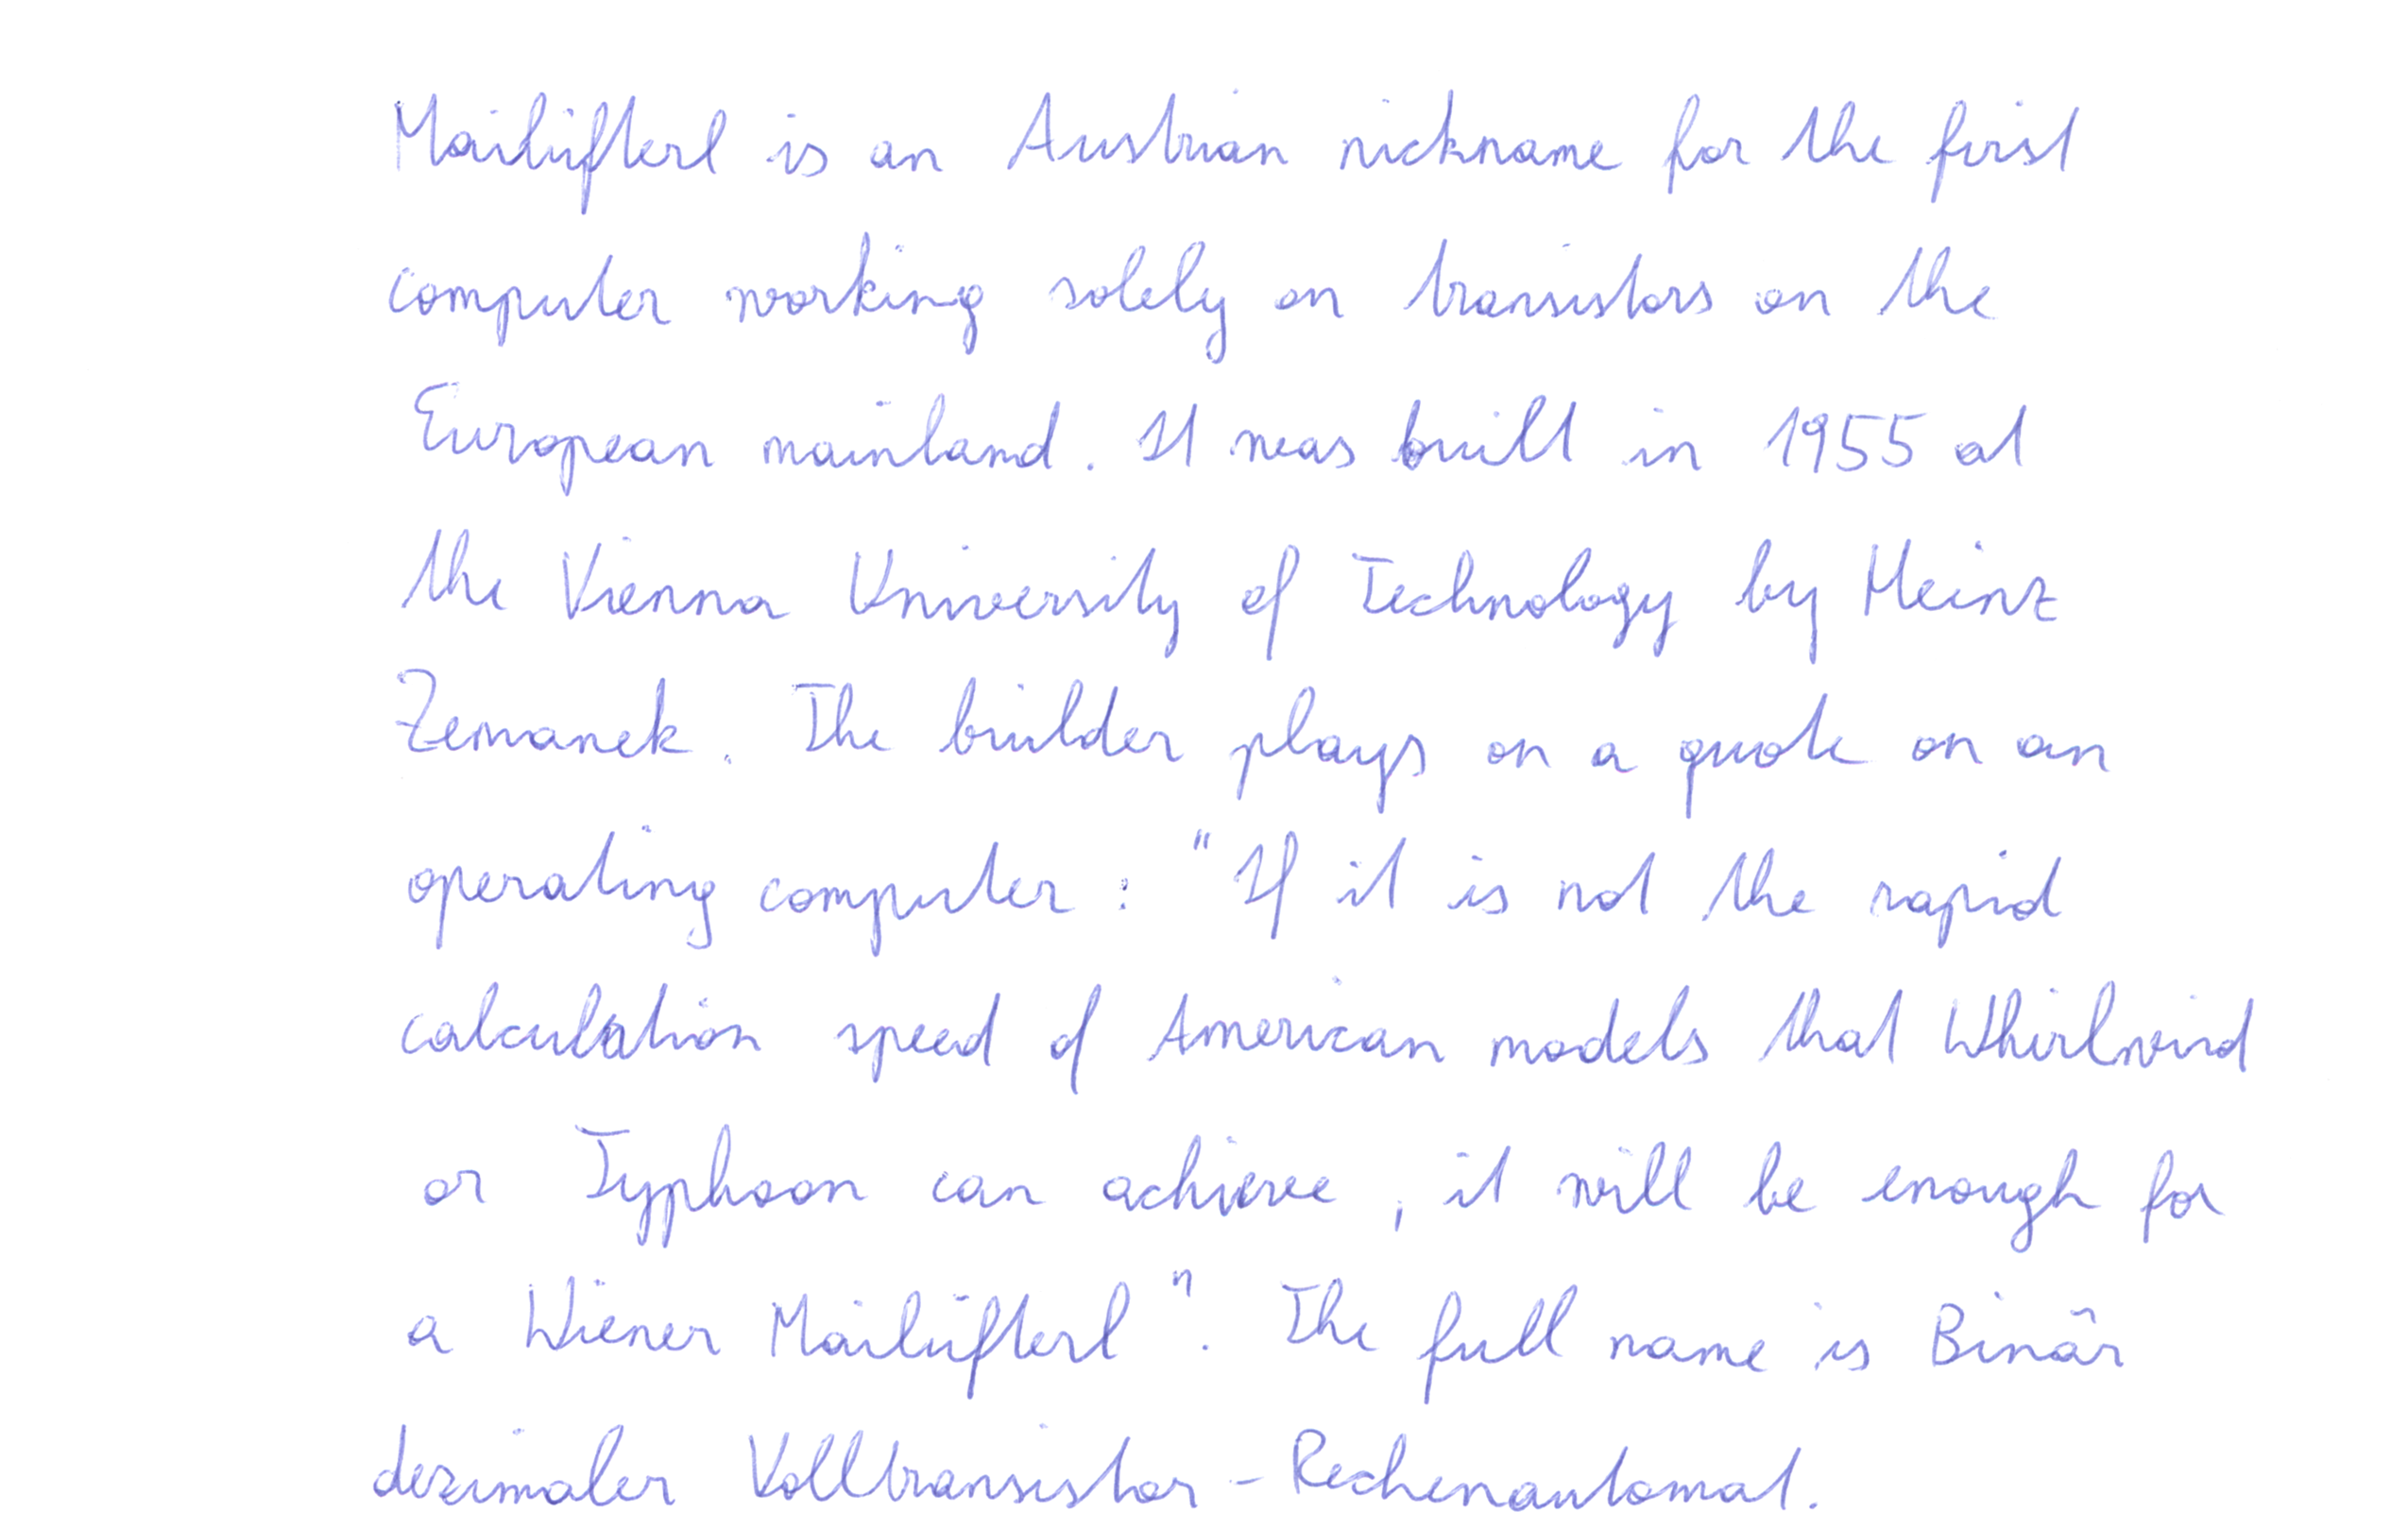 Mailüfterl is an Austrian nickname for the first
computer working solely on transistors on the
European mainland. It was built in 1955 at
the Vienna University of Technology by Heinz
Zemanek. The builder plays on a quote on an
operating computer: "If it is not the rapid
calculation speed of American models that Whirlwind
or Typhoon can achieve, it will be enough for
a Wiener Mailüfterl". The full name is Binär
dezimaler Volltransistor-Rechenautomat.